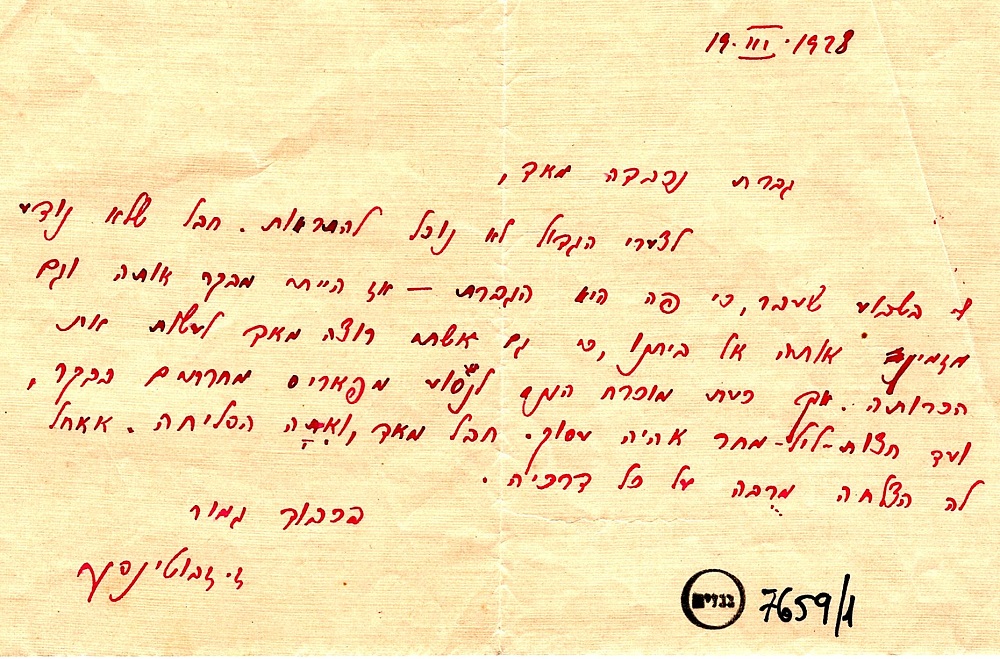 19.III.1928
גברת נכבדה מאד,
לצערי הגדול לא נוכל להתראות. חבל שלא נודע
לי בשבוע שעבר, כי פה היא הגברת — אז הייתי מבקר אותה וגם
מזמין אותה אל ביתנו, כי גם אשתי רוצה מאד לעשות את
הכרותה. אך כעת מוכרח הנני לנסוע מפאריס מחרתים בבקר,
ועד חצות-ליל-מחר אהיה עסוק. חבל מאד, ואתה הסליחה. אאחל
לה הצלחה מרבה על כל דרכיה.
בכבוד גמור
ז. ז'בוטינסקי
7659/1